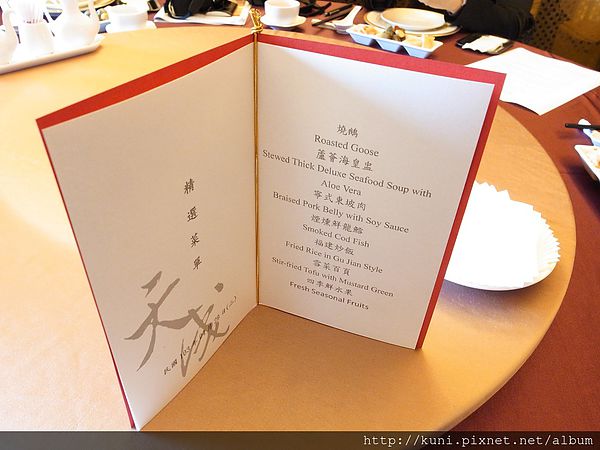 精選菜單
天成
燒鵝
Roasted Goose
蘆薈海皇盅
Stewed Thick Deluxe Seafood Soup with
Aloe Vera
寧式東坡肉
Braised Pork Belly with Soy Sauce
煙燻鮮龍鱈
Smoked Cod Fish
福建炒飯
Fried Rice in Gu Jian Style
雪菜百頁
Stir-fried Tofu with Mustard Green
四季鮮水果
Fresh Seasonal Fruits
http://kuni.pixnet.net/album